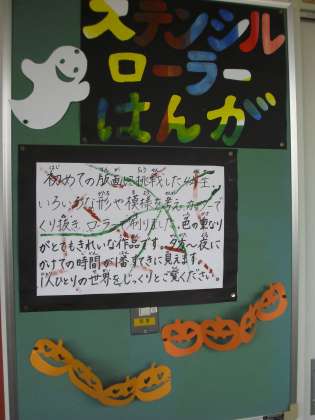 ステンシル
ローラー
はんが
初めての版画に挑戦した4年生。
いろいろな形や模様を考え、カッターで
くり抜き、ローラーで刷りました。色の重なり
がとてもきれいな作品です。夕方〜夜に
かけての時間が1番すてきに見えます。
1人ひとりの世界をじっくりとご覧ください。